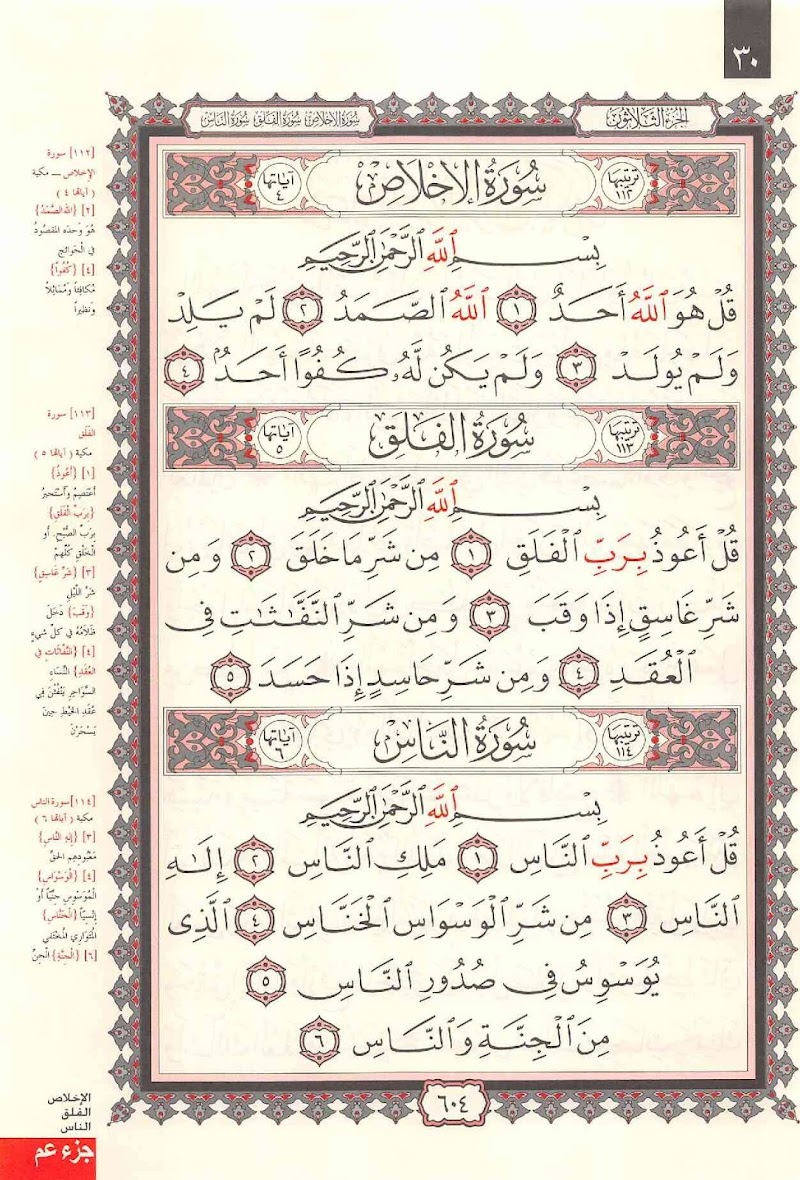 ٣٠
الجزء الثلاثون
سورة الاخلاص سورة الفلق سورة الناس
ترتيبها ١١٢ سُورَةُ الإِخْلَاصِ آياتها ٤
بِسْمِ اللَّهِ الرَّحْمَٰنِ الرَّحِيمِ
قُلْ هُوَ اللَّهُ أَحَدٌ ١ اللَّهُ الصَّمَدُ ٢ لَمْ يَلِدْ
وَلَمْ يُولَدْ ٣ وَلَمْ يَكُن لَّهُۥ كُفُوًا أَحَدٌۢ ٤
ترتيبها ١١٣ سُورَةُ الفَلَقِ آياتها ٥
بِسْمِ اللَّهِ الرَّحْمَٰنِ الرَّحِيمِ
قُلْ أَعُوذُ بِرَبِّ الْفَلَقِ ١ مِن شَرِّ مَا خَلَقَ ٢ وَمِن
شَرِّ غَاسِقٍ إِذَا وَقَبَ ٣ وَمِن شَرِّ النَّفَّٰثَٰتِ فِى
الْعُقَدِ ٤ وَمِن شَرِّ حَاسِدٍ إِذَا حَسَدَ ٥
ترتيبها ١١٤ سُورَةُ النَّاسِ آياتها ٦
بِسْمِ اللَّهِ الرَّحْمَٰنِ الرَّحِيمِ
قُلْ أَعُوذُ بِرَبِّ النَّاسِ ١ مَلِكِ النَّاسِ ٢ إِلَٰهِ
النَّاسِ ٣ مِن شَرِّ الْوَسْوَاسِ الْخَنَّاسِ ٤ الَّذِى
يُوَسْوِسُ فِى صُدُورِ النَّاسِ ٥
مِنَ الْجِنَّةِ وَالنَّاسِ ٦
٦٠٤
[١١٢] سورة
الإخلاص ــ مكية
(آياتها ٤)
[٢] {اللهُ الصَّمَدُ}
هُوَ وَحدَه المقصُودُ
فِي الحَوائِجِ
[٤] {كُفُواً}
مُكافِئاً وَمُمَاثِلاً
وَنظيراً
[١١٣] سورة
الفلق
مكية (آياتها ٥)
[١] {أَعُوذُ}
أعتَصِمُ وأَستَجيرُ
{بِرَبِّ الْفَلَقِ}
بِرَبِّ الصُّبْحِ. أو
الخَلْقِ كلِّهِمْ
[٣] {شَرِّ غَاسِقٍ}
شَرِّ اللَّيْلِ
{وَقَبَ} دَخَلَ
ظَلامُهُ في كلِّ شيءٍ
[٤] {النَّفَّاثَاتِ فِي
العُقَدِ} النِّسَاءِ
السَّوَاحِرِ يَنْفُثْنَ فِي
عُقَدِ الخَيْطِ حِينَ
يَسْحَرْنَ
[١١٤] سورة الناس
مكية (آياتها ٦)
[٣] {إِلهِ النَّاسِ}
مَعْبُودِهِم الحَقِّ
[٤] {الْوَسْوَاسِ}
الْمُوَسْوِسِ جِنِّيّاً أَوْ
إِنْسِيّاً {الْخَنَّاسِ}
الْمُتَوَارِي الْمُخْتَفِي
[٦] {الْجِنَّةِ} الْجِنِّ
الإخلاص
الفلق
الناس
جزء عم